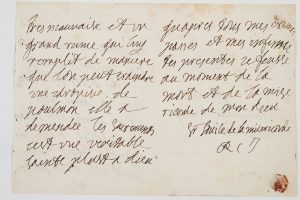 tres mauvaise et un
grand rume qui luy
remplit de maniere
que lon peut craindre
une idropisie de
poulmon elle a
demendée les sacremens
cest une veritable
sainte plust a dieu
quapres tous mes
passes et mes
les presentes
au moment de la
mort et de la mise
ricorde de mon dieu
Sr de la misericorde